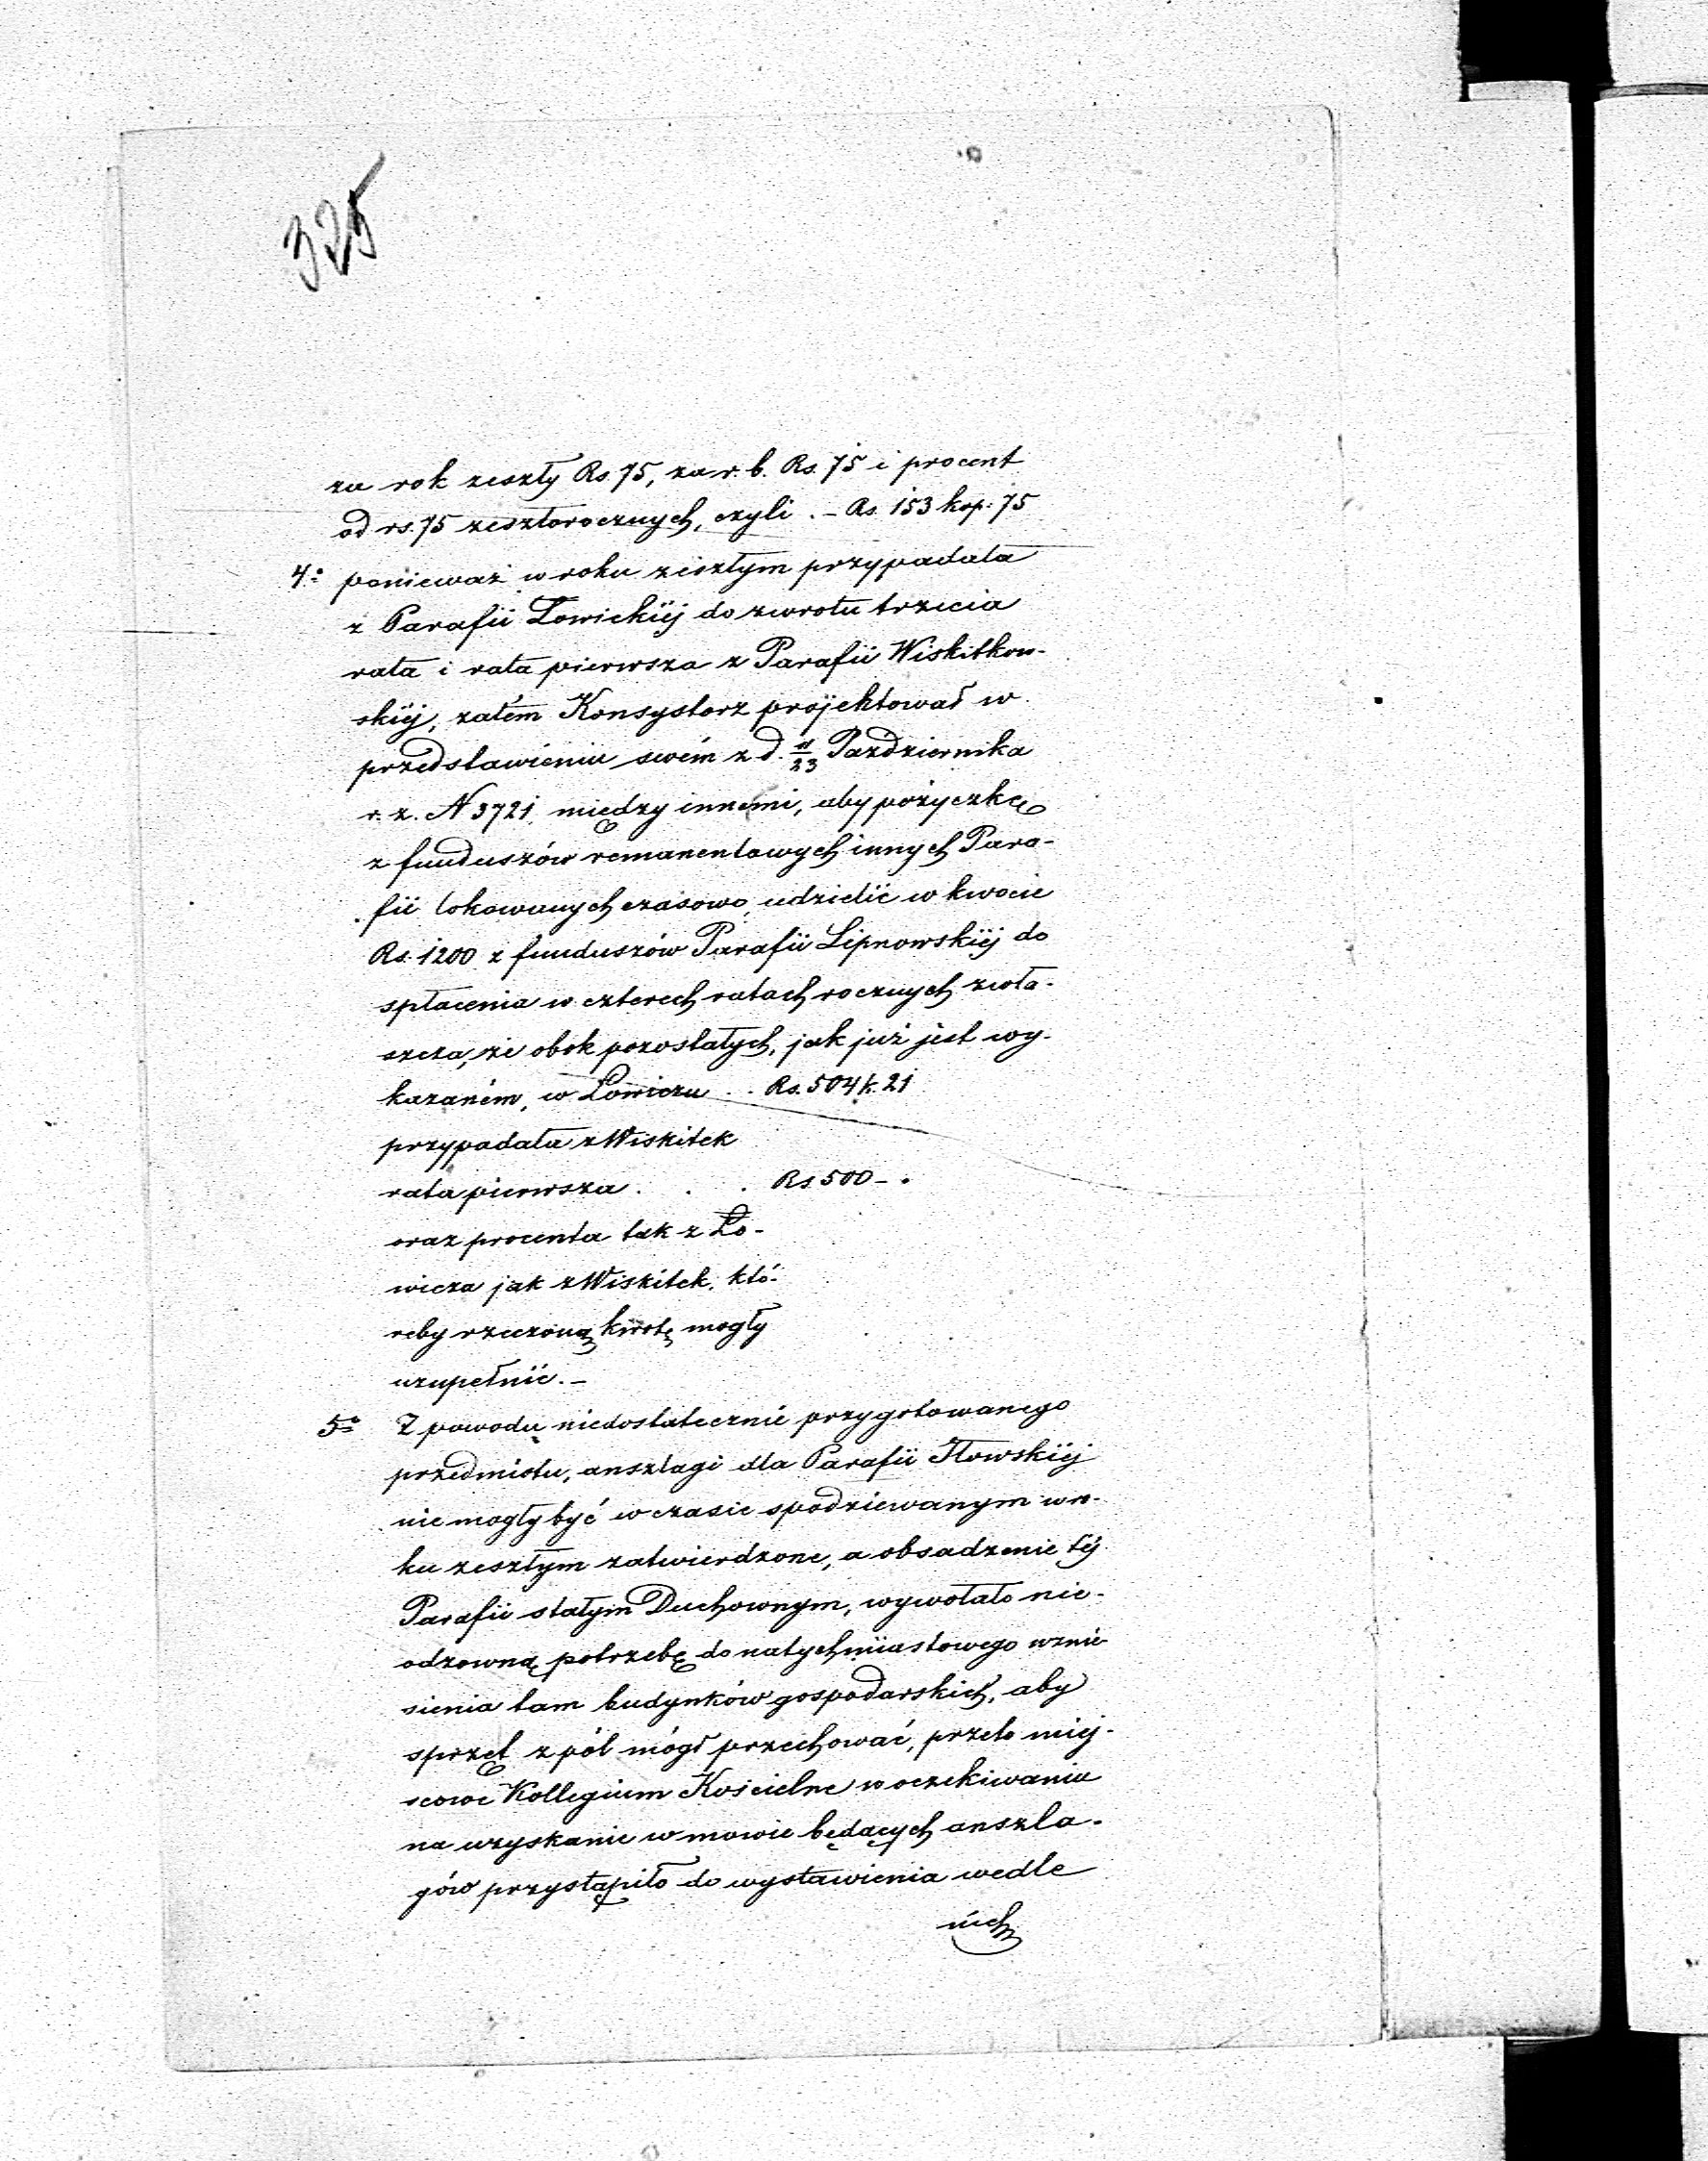 325
za rok zeszły Rs. 75, za r. b. Rs. 75 i procent
od rs. 75 zeszłorocznych, czyli . – Rs. 153 kop: 75
4.º ponieważ w roku zeszłym przypadała
z Parafii Łowickiéj do zwrotu trzecia
rata i rata pierwsza z Parafii Wiskitkow-
skiéj, zatém Konsystorz projektował w
przedstawieniu swém z d. 11/23 Października
r. z. N 3721 między innemi, aby pożyczkę
z funduszów remanentowych innych Para-
fii lokowanych czasowo, udzielić w kwocie
Rs. 1200 z funduszów Parafii Lipnowskiéj do
spłacenia w czterech ratach rocznych zwła-
szcza, że obok pozostałych, jak już jest wy-
kazaném, w Łowiczu . . Rs. 504 k. 21
przypadała z Wiskitek
rata pierwsza . . . Rs 500 – .
oraz procenta tak z Ło-
wicza jak z Wiskitek, któ-
reby rzeczoną kwotę mogły
uzupełnić. –
5º Z powodu niedostatecznie przygotowanego
przedmiotu, anszlagi dla Parafii Iłowskiéj
nie mogły być w czasie spodziewanym w ro-
ku zeszłym zatwierdzone, a obsadzenie téj
Parafii stałym Duchownym, wywołało nie-
odzowną potrzebę do natychmiastowego wznie-
sienia tam budynków gospodarskich, aby
sprzęt z pól mógł przechować, przeto miej-
scowe Kollegium Kościelne w oczekiwaniu
na uzyskanie w mowie będących anszla-
gów przystąpiło do wystawienia wedle
nich